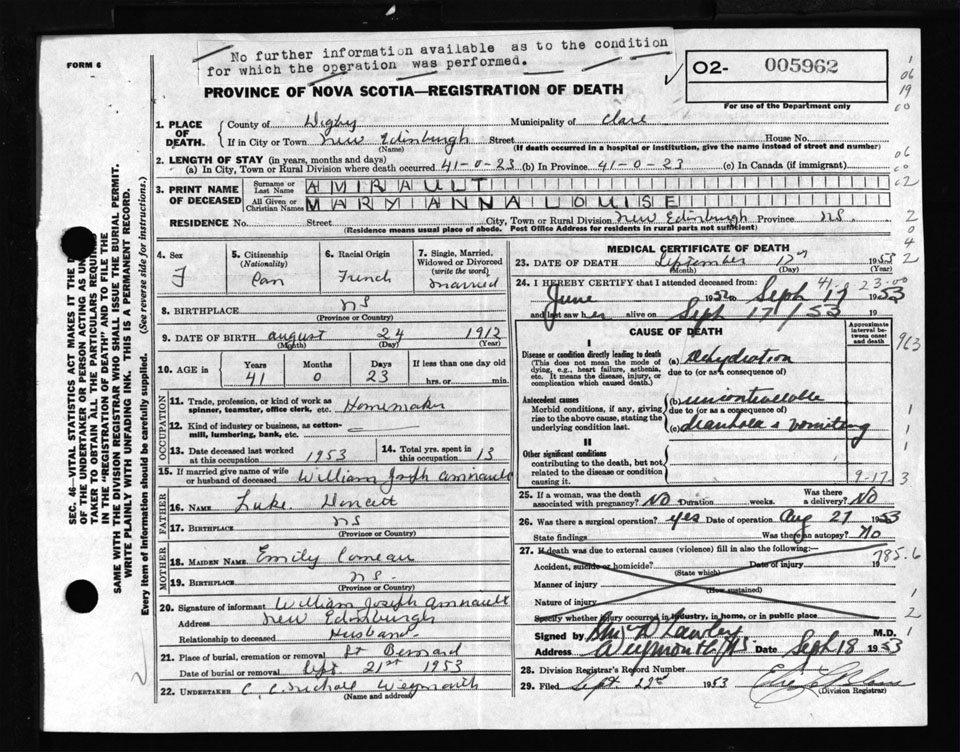 No further information available as to the condition
for which the operation was performed.
FORM 6
O2- 005962
For use of the Department only
PROVINCE OF NOVA SCOTIA—REGISTRATION OF DEATH
1. PLACE OF DEATH. County of Digby Municipality of Clare
If in City or Town New Edinburgh Street House No.
(Name) (If death occurred in a hospital or institution, give the name instead of street and number)
2. LENGTH OF STAY (in years, months and days)
(a) In City, Town or Rural Division where death occurred 41-0-23 (b) In Province 41-0-23 (c) In Canada (if immigrant)
3. PRINT NAME OF DECEASED Surname or Last Name AMIRAULT
All Given or Christian Names MARY ANNA LOUISE
RESIDENCE No. Street City, Town or Rural Division New Edinburgh Province NS.
(Residence means usual place of abode. Post Office Address for residents in rural parts not sufficient)
SEC. 46—VITAL STATISTICS ACT MAKES IT THE
OF THE UNDERTAKER OR PERSON ACTING AS
TAKER TO OBTAIN ALL THE PARTICULARS REQUIRED
IN THE "REGISTRATION OF DEATH" AND TO FILE THE
SAME WITH THE DIVISION REGISTRAR WHO SHALL ISSUE THE BURIAL PERMIT.
WRITE PLAINLY WITH UNFADING INK. THIS IS A PERMANENT RECORD.
Every item of information should be carefully supplied. (See reverse side for instructions.)
4. Sex F
5. Citizenship (Nationality) Can
6. Racial Origin French
7. Single, Married, Widowed or Divorced (write the word) Married
8. BIRTHPLACE NS
(Province or Country)
9. DATE OF BIRTH August 24 1912
(Month) (Day) (Year)
10. AGE in Years 41 Months 0 Days 23 If less than one day old hrs. or min.
OCCUPATION
11. Trade, profession, or kind of work as spinner, teamster, office clerk, etc. Homemaker
12. Kind of industry or business, as cotton-mill, lumbering, bank, etc.
13. Date deceased last worked at this occupation 1953
14. Total yrs. spent in this occupation 13
15. If married give name of wife or husband of deceased William Joseph Amirault
FATHER
16. NAME Luke Doucett
17. BIRTHPLACE NS
(Province or Country)
MOTHER
18. MAIDEN NAME Emily Comeau
19. BIRTHPLACE NS.
(Province or Country)
20. Signature of informant William Joseph Amirault
Address New Edinburgh
Relationship to deceased Husband
21. Place of burial, cremation or removal St Bernard
Date of burial or removal Sept. 21st 1953
22. UNDERTAKER Weymouth
(Name and address)
MEDICAL CERTIFICATE OF DEATH
23. DATE OF DEATH September 17th 1953
(Month) (Day) (Year)
41-0-23-00
24. I HEREBY CERTIFY that I attended deceased from:
June 1952 to Sept 17 1953
and last saw her alive on Sept 17/53 19
CAUSE OF DEATH
Approximate interval between onset and death
I
Disease or condition directly leading to death (a) Dehydration
(This does not mean the mode of dying, e.g., heart failure, asthenia, etc. It means the disease, injury, or complication which caused death.) due to (or as a consequence of)
Antecedent causes (b) uncontrollable
Morbid conditions, if any, giving rise to the above cause, stating the underlying condition last. due to (or as a consequence of)
(c) diarrhoea & vomiting
II
Other significant conditions
contributing to the death, but not related to the disease or condition causing it.
9-17-3
25. If a woman, was the death associated with pregnancy? No Duration weeks. Was there a delivery? No
26. Was there a surgical operation? yes Date of operation Aug 27 1953
State findings Was there an autopsy? No
27. If death was due to external causes (violence) fill in also the following:— 785.6
Accident, suicide or homicide? Date of injury 19
(State which)
Manner of injury
(How sustained)
Nature of injury
Specify whether injury occurred in industry, in home, or in public place
Signed by M.D.
Address Weymouth NS. Date Sept 18 1953
28. Division Registrar's Record Number
29. Filed Sept. 22nd 1953
(Division Registrar)